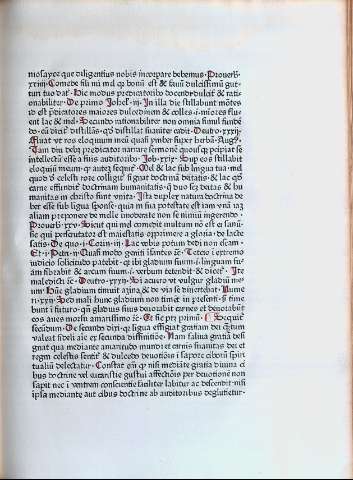 mosayce que diligentius nobis incorpare debemus. Prouerb.
xxiiij. Comede fili mi mel quia bonum est et fauum dulcissimum gut-
turi tuo dat. Hic modus predicatoribus docendi dulcis et rati-
onabiliter. De primo Johel. iij. In illa die stillabunt mōtes
id est predicatores maiores dulcedinem et colles .i. miores flu-
ent lac et mel. Secundo rationabiliter non omnia simul funde-
do. cum dicit distillās. qui distillat suauiter cadit. Deutro. xxxij.
fluat ut ros eloquium meum quasi ymber super herbā. Aug.
Tam diu debet predicator narrare sermonē quousque percipiat se
intellectū esse a suis auditoribus. Job. xxix. Sup eos stillabit
eloquiū meum.
caro. Mel et lac sub lingua tua. mel
quod de celesti rore colligit figurat doctrinā deitatis. et lac quod
carne effundit doctrinam humanitatis. que duo scz deitas et hu
manitas in christo sunt vnite. Ista duplex natura doctrina de
ber esse sub ligua sponse. quia in sua potestate est iam vnā
aliam preponere de melle moderate non se nimiū ingerendo.
Prouerb. xxv. Sicut qui mel comedit multum nō est ei bonū
sic qui perscrutator est maiestatis opprimetur a gloria. de lacte
satis. De quo .i. Corin. iij. Lac vobis potum dedi non escam.
Et .i. Petri. ij. Quasi modo geniti infantes etc. Tercio extremo
iudicio sollicitudo patebit. quia ibi gladium suum .i. linguam su-
am fibrabit et arcum suum .i. verbum tetendit et dicet. Ite
maledicti etc. Deutro. xxxij. Si acuero vt vulgur gladiū me
um. Hūc gladium timuit asina et de via se diuertebat. Nume
ri. xxij. Sed mali hunc gladium non timēt in presenti. sed time
bunt in futuro. quia gladius suus deuorabit carnes et deuorabūt
eos aues morsu amarissimo etc. Et sic patet primū. Sequitur
secūdum. De secundo dixi quia ligua effigiat gratiam dei quantum
valeat fidelis aie ex secunda diffinitiōe. Nam saliua gratiā desi
gnat qua mediante amaritudo mundi et carnis suauitas dei et
regni celestis sentit et dulcedo deuotiōnis i sapore ciborū spiri
tualiū delectatur. Constat enī quia nisi mediāte gratia diuina ci
bus doctrine vel eucaristie gustui affectiōis per deuotionē non
sapit nec i ventrem conscientie faciliter labitur ac descendit nisi
ipsa mediante aut cibus doctrine ab auditoribus deglutietur